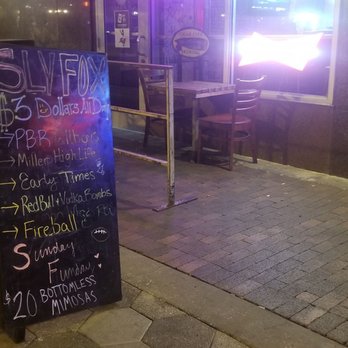 SLY FOX
$3 Dollars All Day
→ PBR Tallboys
→ Miller High Life
→ Early Times
→ Red Bull + Vodka Bombs
→ Fireball
Sunday
Funday
$20 BOTTOMLESS
MIMOSAS